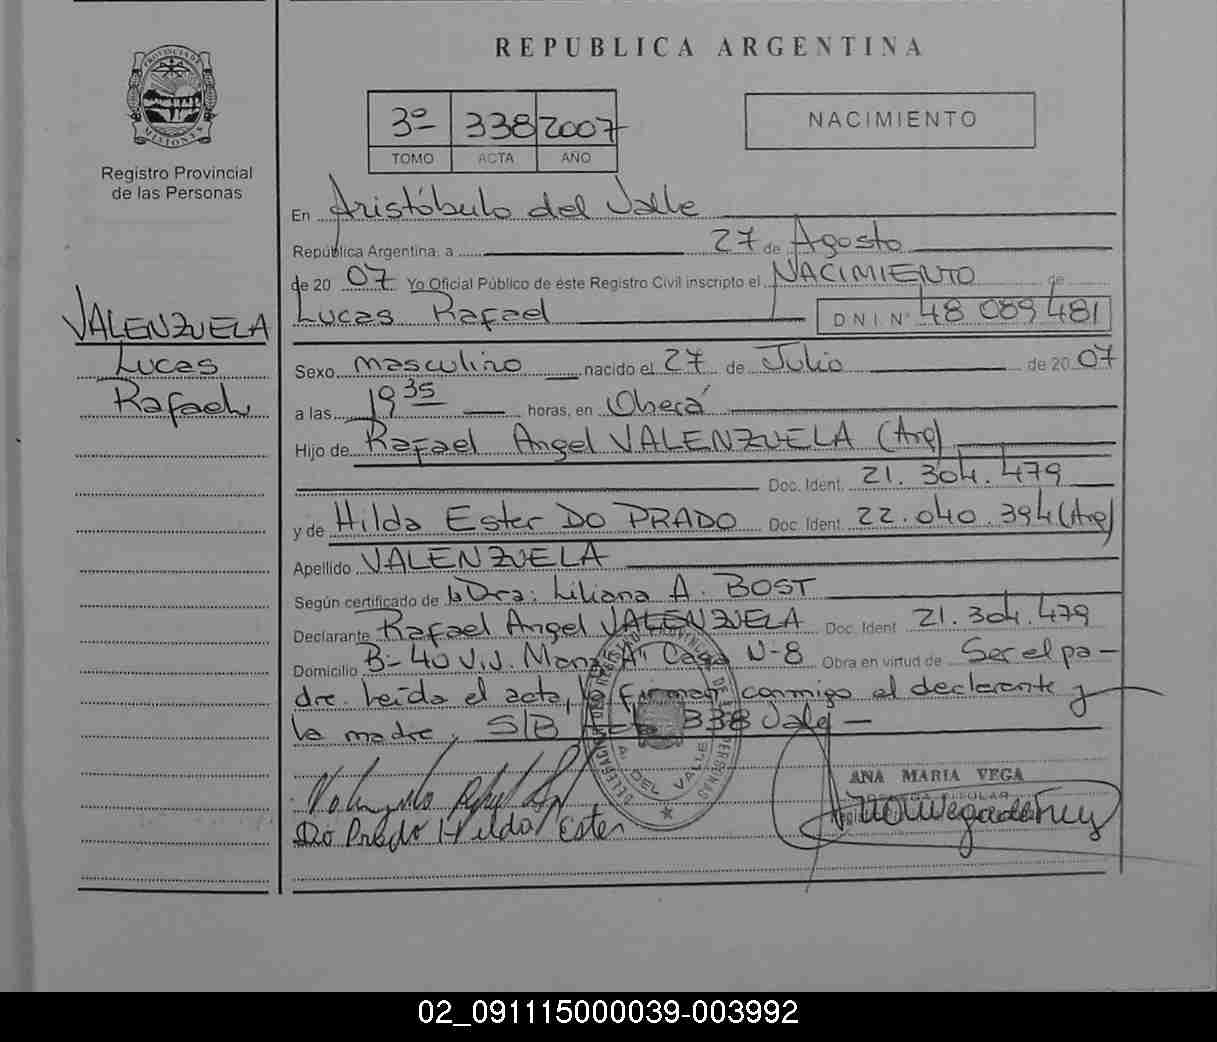 REPUBLICA ARGENTINA
PROVINCIA DE
MISIONES
Registro Provincial
de las Personas
3º 338 2007
TOMO ACTA AÑO
NACIMIENTO
En Aristóbulo del Valle
República Argentina, a 27 de Agosto
de 20 07 Yo Oficial Público de éste Registro Civil inscripto el NACIMIENTO de
Lucas Rafael DNI Nº 48 089 481
VALENZUELA
Lucas
Rafael
Sexo masculino nacido el 27 de Julio de 20 07
a las 19 35 horas, en Oberá
Hijo de Rafael Angel VALENZUELA (Arg)
Doc. Ident. 21.304.479
y de Hilda Ester DO PRADO Doc. Ident. 22.040.394 (Arg)
Apellido VALENZUELA
Según certificado de la Dra: Liliana A. BOST
Declarante Rafael Angel VALENZUELA Doc. Ident 21.304.479
Domicilio B- 40 V.V. Manz "A" Casa N-8 Obra en virtud de Ser el pa-
dre. Leída el acta, la firman conmigo el declarante y
la madre. S/B 338 Vale-
A. DEL VALLE
ANA MARIA VEGA
Do Prado Hilda Ester
02_091115000039-003992